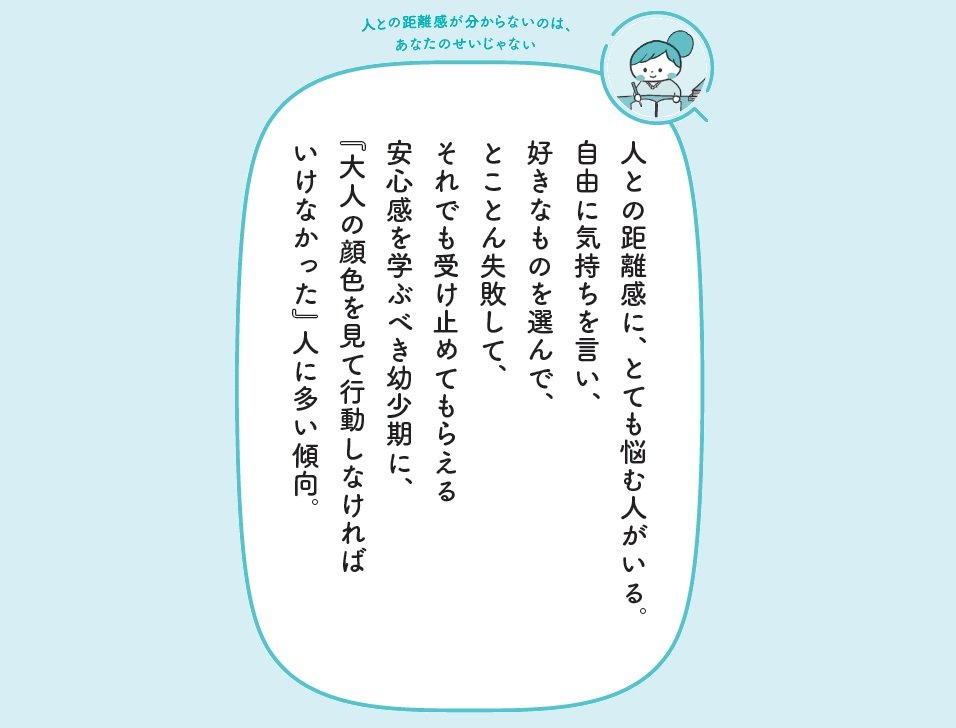 人との距離感が分からないのは、
あなたのせいじゃない
人との距離感に、とても悩む人がいる。
自由に気持ちを言い、
好きなものを選んで、
とことん失敗して、
それでも受け止めてもらえる
安心感を学ぶべき幼少期に、
『大人の顔色を見て行動しなければ
いけなかった』人に多い傾向。